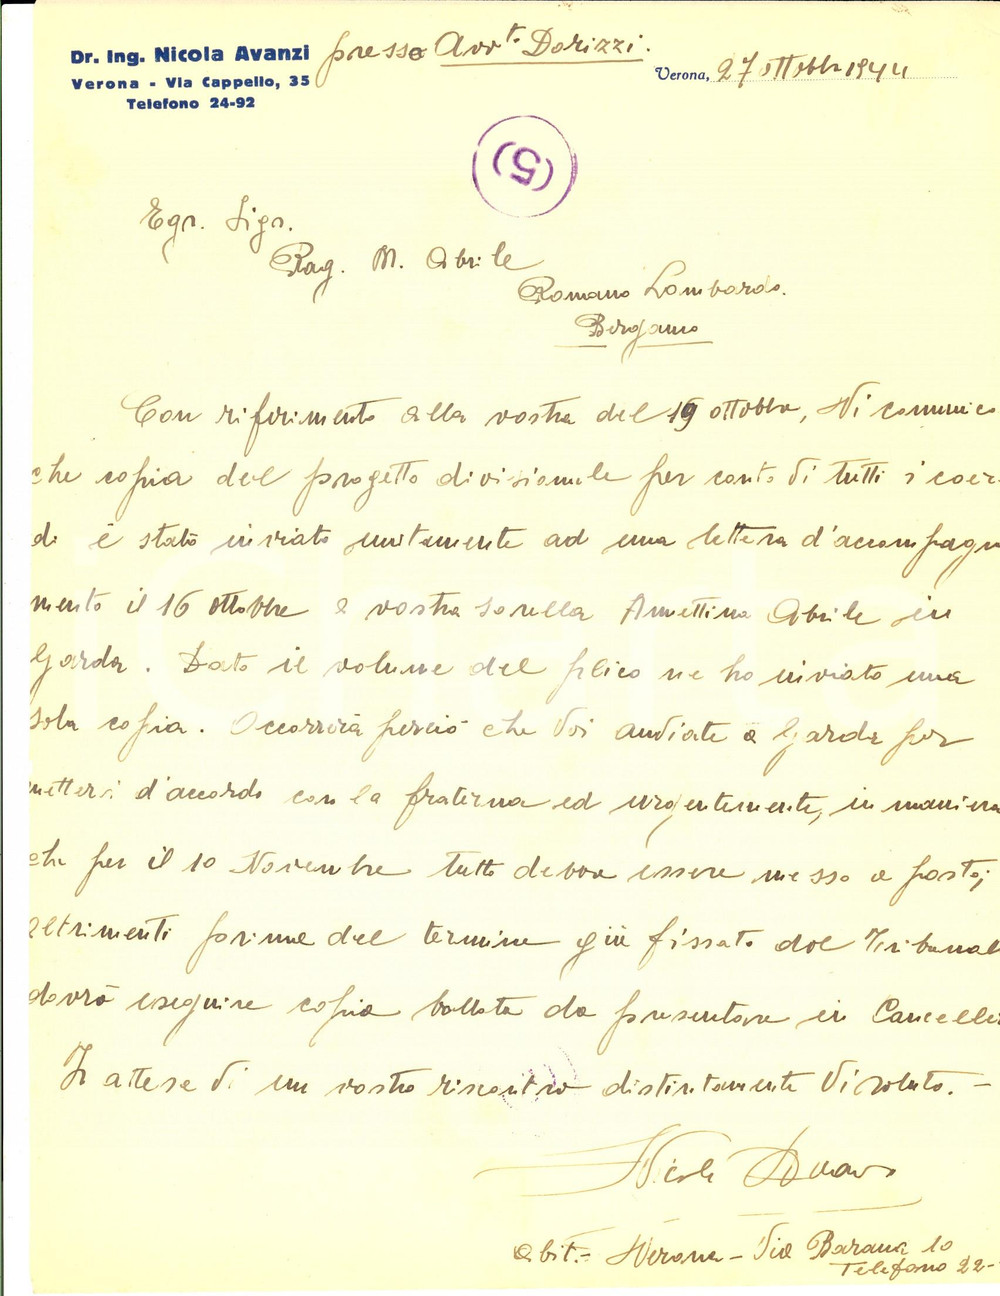 Dr. Ing. Nicola Avanzi presso Avv.to Dorizzi.
Verona - Via Cappello, 35
Telefono 24-92
Verona, 27 ottobre 1944
(5)
Egr. Sigr.
Rag. M. Abrile
Romano Lombardo.
Bergamo
Con riferimento alla vostra del 19 ottobre, Vi comunico
che copia del progetto divisionale per conto di tutti i coer-
di è stato inviato unitamente ad una lettera d'accompagna
mento il 16 ottobre a vostra sorella Annettina Abrile in
Garda. Dato il volume del plico ne ho inviato una
sola copia. Occorrerà perciò che Voi andiate a Garda per
mettervi d'accordo con la fraterna ed urgentemente, in maniera
che per il 10 Novembre tutto deve essere messo a posto;
altrimenti prima del termine già fissato dal Tribunale
dovrò eseguire copia bollata da presentare in Cancelle
In attesa di un vostro riscontro distintamente Vi saluto. -
Nicola Avanzi
abit.- Verona - Via Barana 10
Telefono 22-